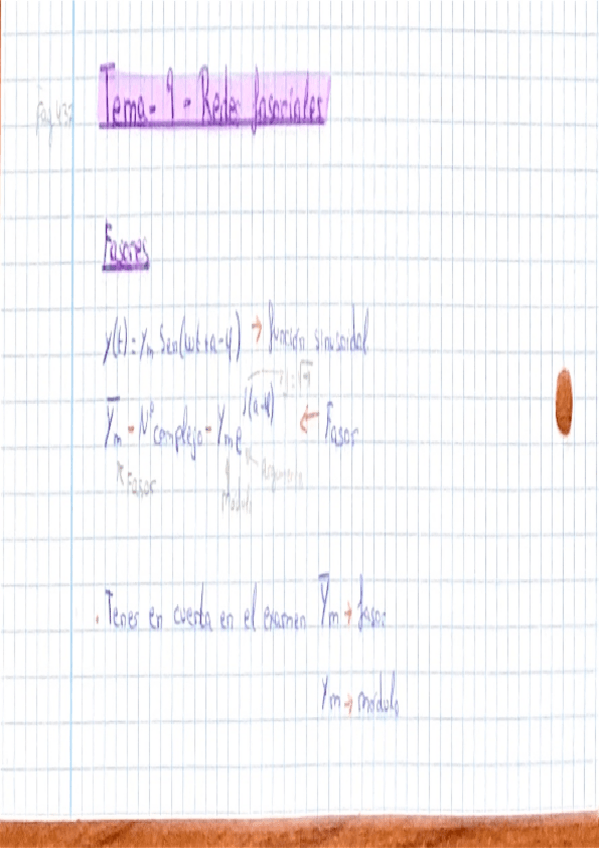 Tema - 9 - Redes fasoriales
Pág 437
Fasores
y(t) = Ym Sen(wt+α-φ) → función sinusoidal
Y̅m - Nº complejo = Ym e^j(α-φ) ← Fasor
j = √-1
↖ Fasor
Módulo
Argumento
. Tener en cuenta en el examen Y̅m → fasor
Ym → módulo